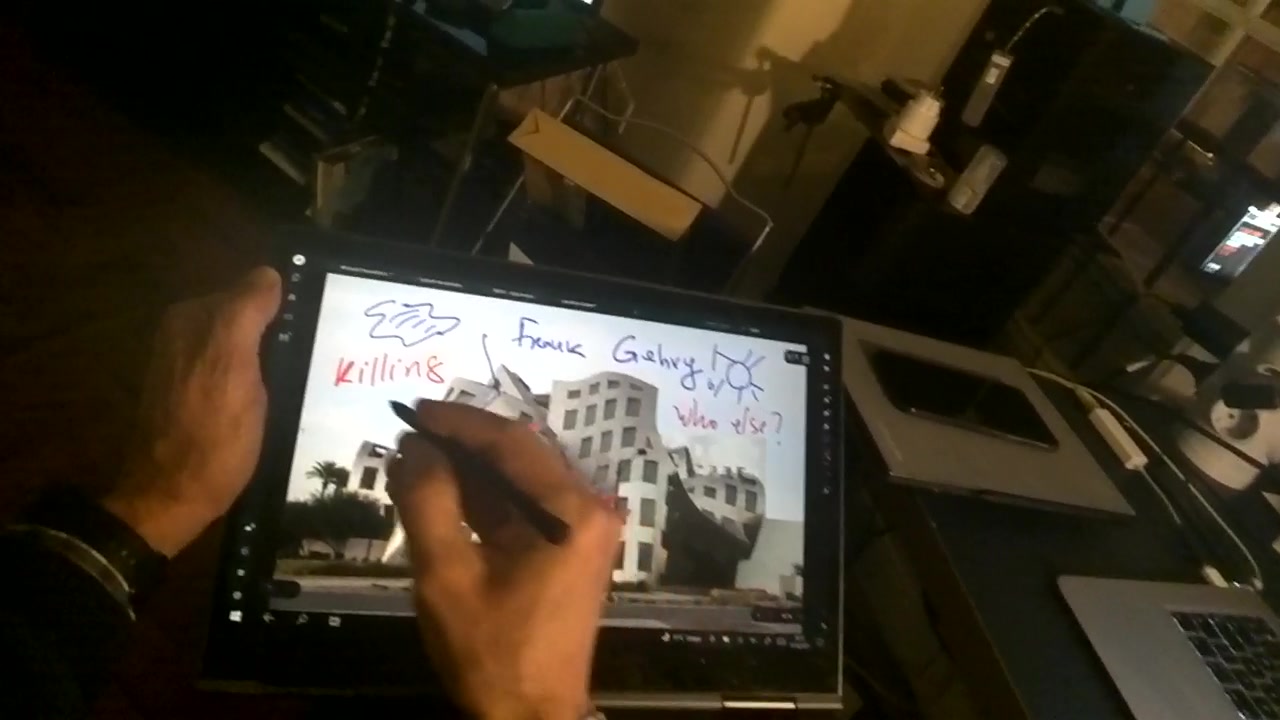 Frank Gehry!
Killing
by
who else?